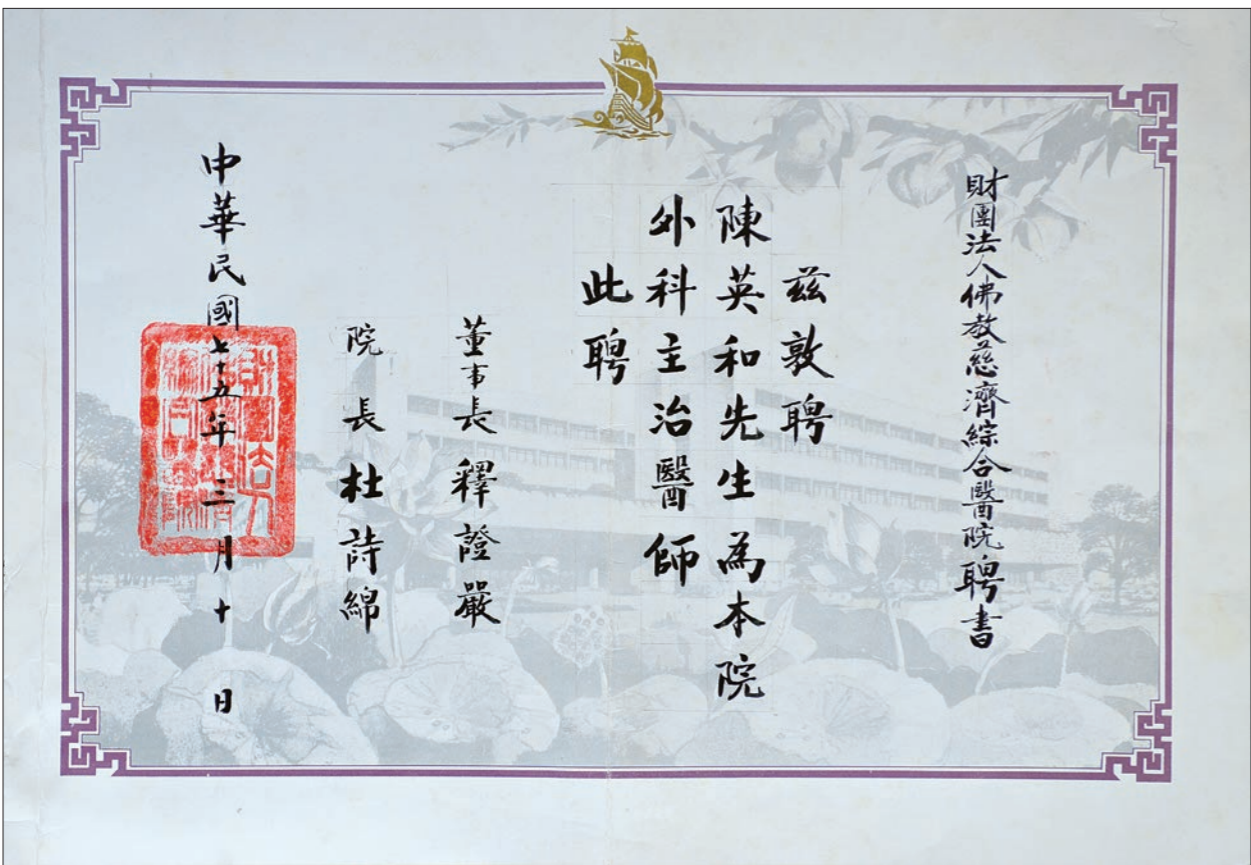 財團法人佛教慈濟綜合醫院聘書
茲敦聘
陳英和先生為本院
外科主治醫師
此聘
董事長釋證嚴
院長杜詩綿
中華民國七十五年三月十日